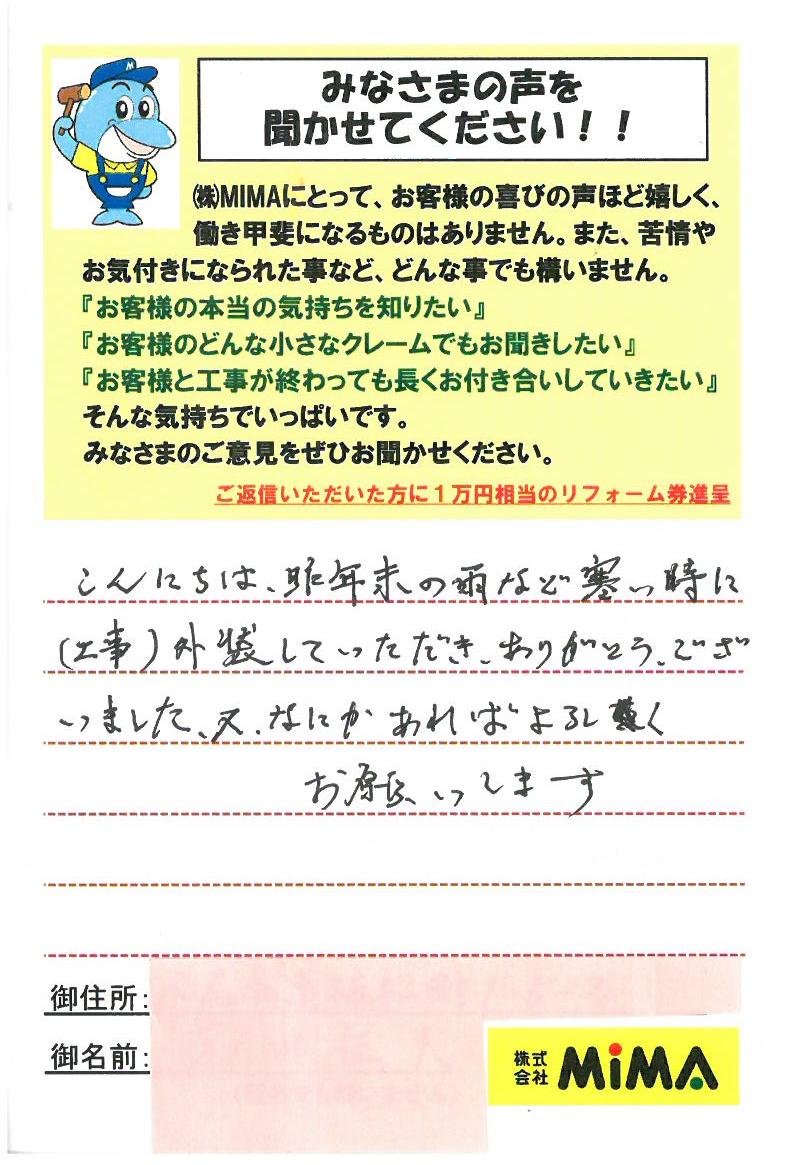 みなさまの声を
聞かせてください！！
㈱MIMAにとって、お客様の喜びの声ほど嬉しく、
働き甲斐になるものはありません。また、苦情や
お気付きになられた事など、どんな事でも構いません。
『お客様の本当の気持ちを知りたい』
『お客様のどんな小さなクレームでもお聞きしたい』
『お客様と工事が終わっても長くお付き合いしていきたい』
そんな気持ちでいっぱいです。
みなさまのご意見をぜひお聞かせください。
ご返信いただいた方に１万円相当のリフォーム券進呈
こんにちは、昨年末の雨など寒い時に
(工事)外装していただき、ありがとう、ござ
いました、又、なにかあればよろしく
お願いします
御住所:
御名前:
株式
会社 MiMA
M